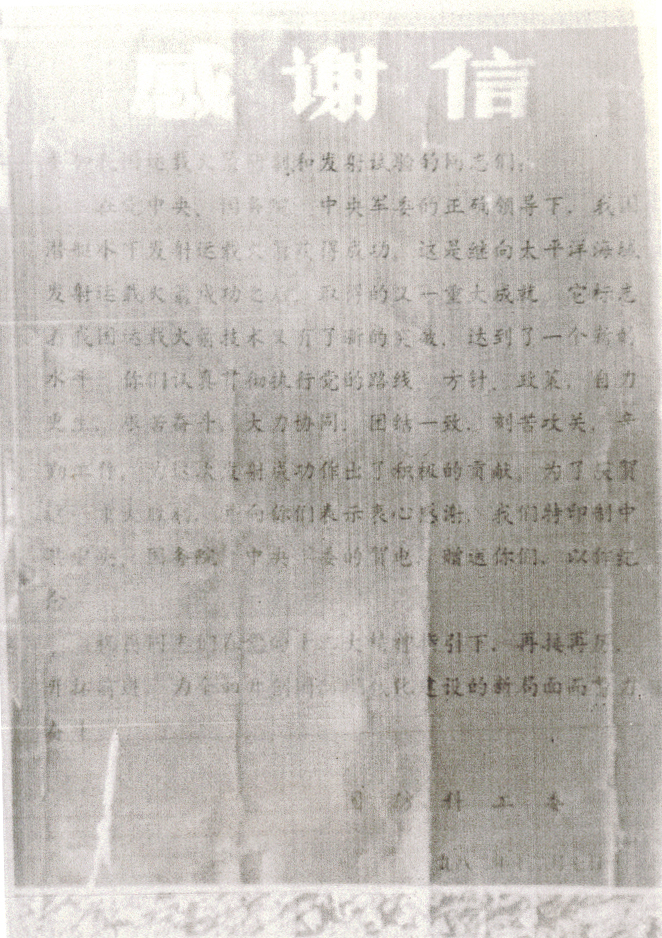 感谢信
参加我国运载火箭研制和发射试验的同志们：
在党中央、国务院、中央军委的正确领导下，我国
潜艇水下发射运载火箭获得成功。这是继向太平洋海域
发射运载火箭成功之后，取得的又一重大成就。它标志
着我国运载火箭技术又有了新的突破，达到了一个新的
水平。你们认真贯彻执行党的路线、方针、政策，自力
更生，艰苦奋斗，大力协同，团结一致，刻苦攻关，辛
勤工作，为这次发射成功作出了积极的贡献。为了庆贺
这一重大胜利，并向你们表示衷心感谢，我们特印制中
共中央、国务院、中央军委的贺电，赠送你们，以作纪
念。
同志们在党的十二大精神指引下，再接再厉，
前进，为全面开创国防现代化建设的新局面而努力
奋斗！
国防科工委